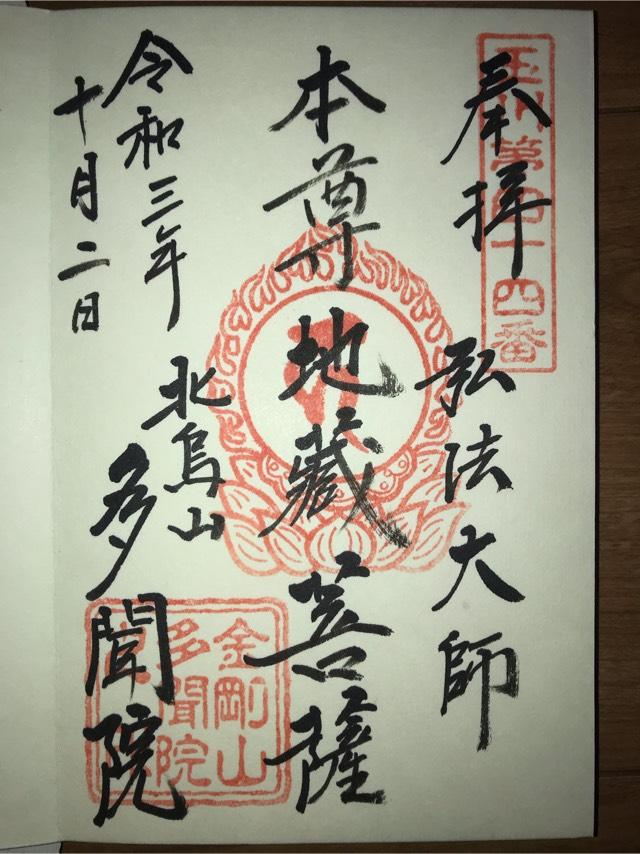 玉川第四十四番
奉拝
弘法大師
本尊地蔵菩薩
令和三年
十月二日
北烏山
多聞院
金剛山
多聞院